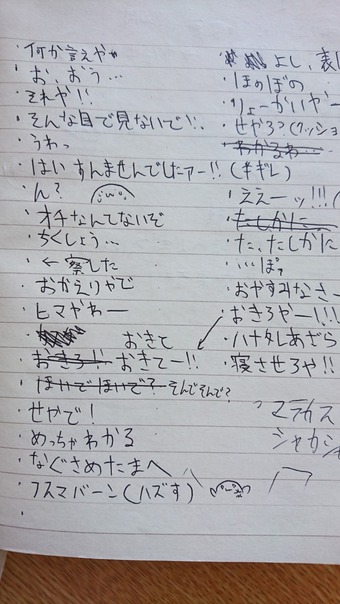 ・何か言えやw
・お、おう…
・それや!!
・そんな目で見ないで!!
・うわっ
・はい すんませんでしたァー!! (半ギレ)
・ん?
・オチなんてないぞ
・ちくしょう…
・← 察した
・おかえりやで
・ヒマやわー
おきて
・おきろ!! おきてー!!
・ほいでほいで? そんでそんで?
・せやで!
・めっちゃわかる
・なぐさめたまへ
・フスマバーン(ハズす)
・
よし、表
・ほのぼの
・りょーかいやー
・せやろ?(クッショ
・わかるわー
・ええーッ!!!(
・たしかに
・た、たしかに
・…ぽっ
・おやすみなさー
・おきろやー!!!
・ハナタレあざら
・寝させろや!!
マラカス
シャカシャ